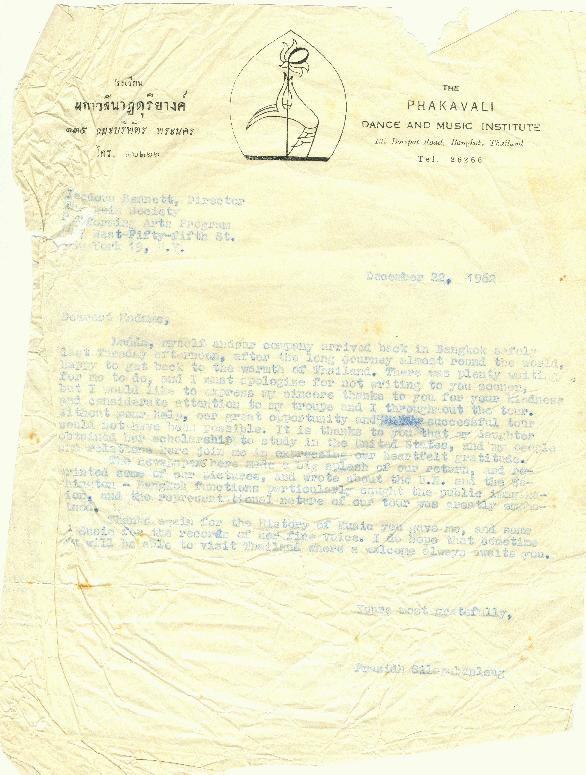 โรงเรียน
ผกาวลีนาฏดุริยางค์
พระนคร
โทร. ๒๖๒๖๖
THE
PHAKAVALI
DANCE AND MUSIC INSTITUTE
Road, Bangkok, Thailand
Tel. 26266
Bennett, Director
Society
Performing Arts Program
West Fifty-fifth St.
York 19, .Y.
December 22, 1962
Dearest Madame,
myself and company arrived back in Bangkok safely
last Tuesday afternoon, after the long journey almost round the world,
happy to get back to the warmth of Thailand. There was plenty waiting
for me to do, and I must apologise for not writing to you sooner,
but I would like to express my sincere thanks to you for your kindness
and considerate attention to my troupe and I throughout the tour.
Without your help, our great opportunity and successful tour
would not have been possible. It is thanks to you that my daughter
obtained her scholarship to study in the United States, and my people
and relations here join me in expressing our heartfelt gratitude.
The newspapers here made a big splash of our return, and re-
printed some of our pictures, and wrote about the U.N. and the Wa-
shington - Bangkok functions particularly caught the public imagina-
ion, and the represent tional nature of our tour was greatly empha-
Thanks again for the History of Music you gave me, and same
Susie for the records of her fine voice. I do hope that sometime
u will be able to visit Thailand where a welcome always awaits you.
Yours most gratefully,
Prasidh Silapabanleng